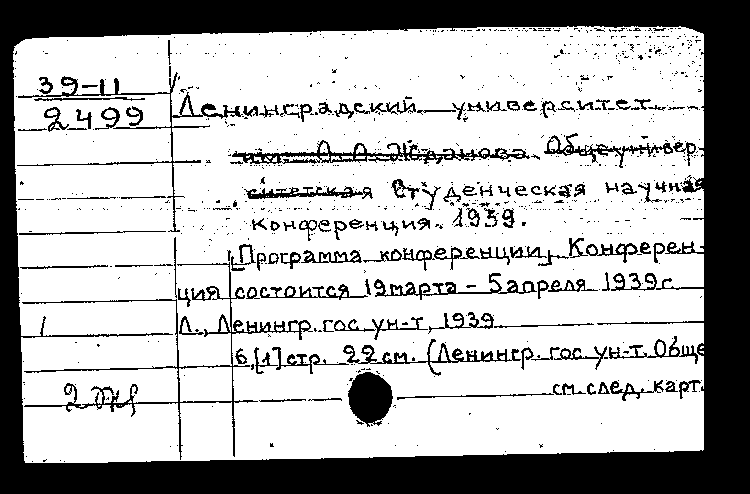 39-11
2499
Ленинградский университет
им. А. А. Жданова. Общеунивер-
ситетская Студенческая научная
конференция. 1939.
[Программа конференции]. Конферен-
ция состоится 19 марта - 5 апреля 1939 г.
Л., Ленингр. гос. ун-т, 1939
6,[1] стр. 22 см. (Ленингр. гос. ун-т. Обще
см. след. карт.